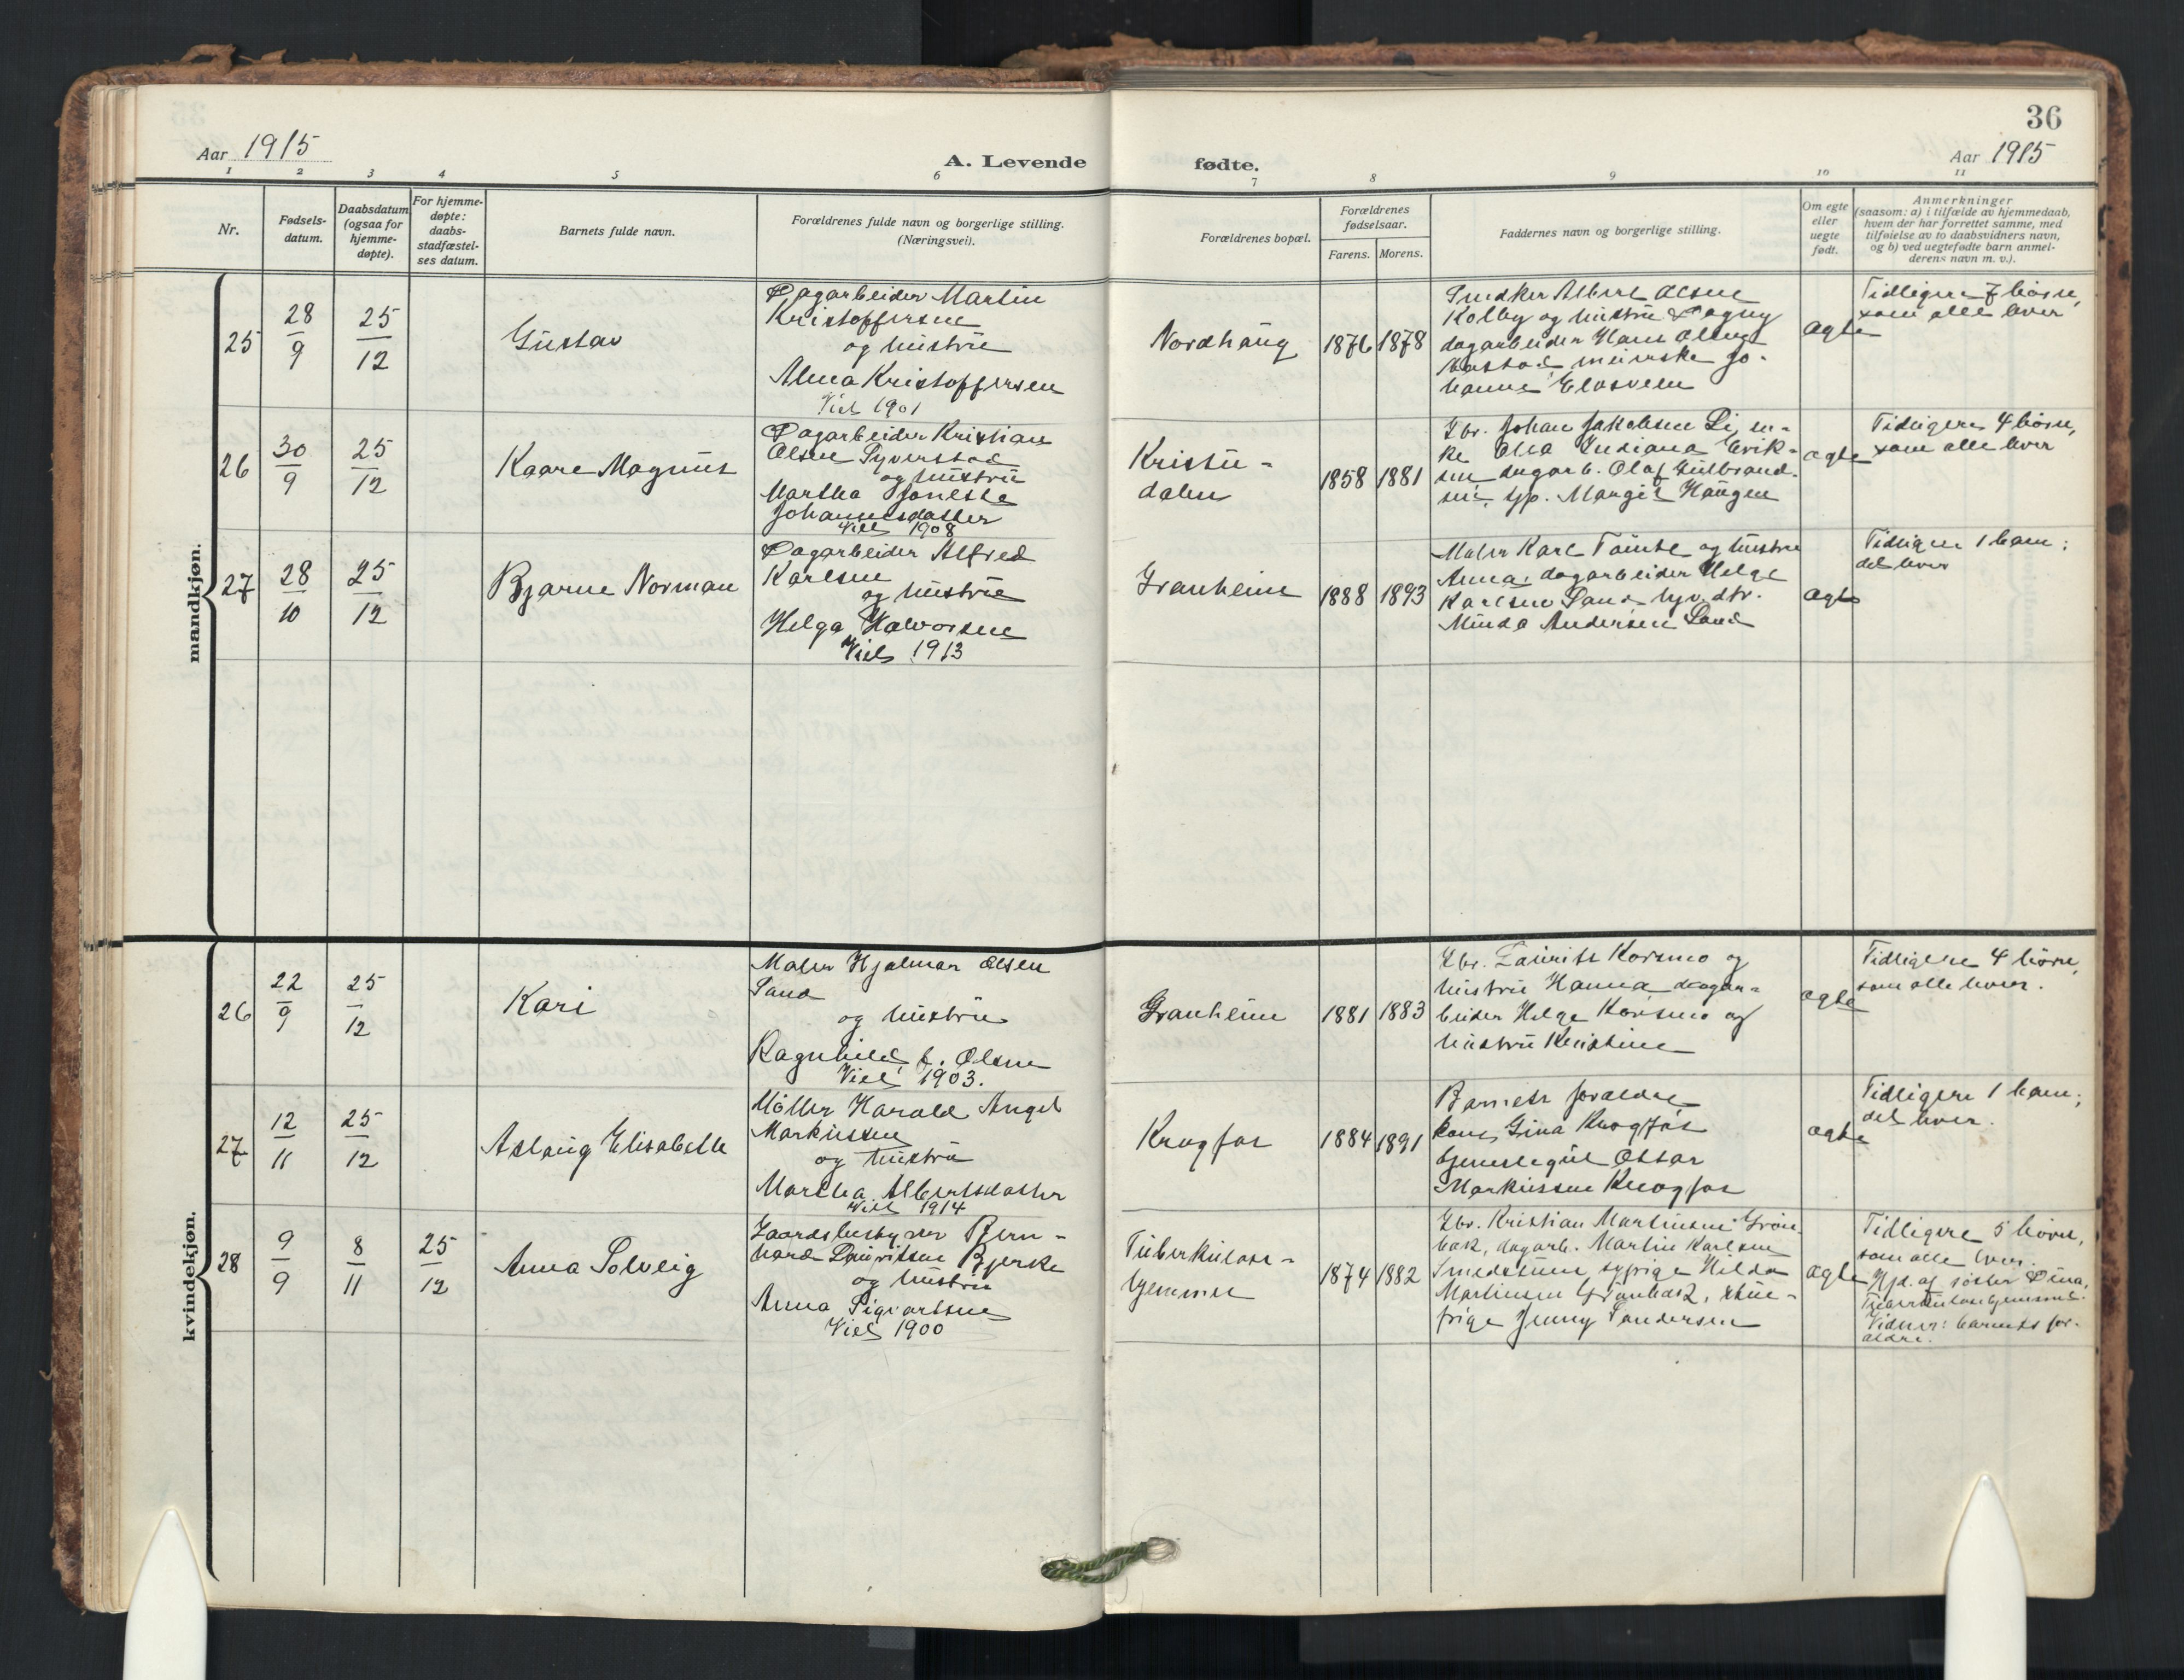 36
Aar 1915
A. Levende
fødte.
Aar 1915
1 2 3 4 5 6 7 8 9 10 11
Nr.
Fødsels-
datum.
Daabsdatum
(ogsaa for
hjemme-
døpte).
For hjemme-
døpte:
daabs-
stadfæstel-
ses datum.
Barnets fulde navn.
Forældrenes fulde navn og borgerlige stilling.
(Næringsvei).
Forældrenes bopæl.
Forældrenes
fødselsaar.
Farens. Morens.
Faddernes navn og borgerlige stilling.
Om egte
eller
uegte
født.
Anmerkninger
(saasom: a) i tilfælde av hjemmedaab,
hvem der har forrettet samme, med
tilføielse av to daabsvidners navn,
og b) ved uegtefødte barn anmel-
derens navn m. v.).
mandkjøn.
25
28
9
25
12
Gustav
Dagarbeider Martin
Kristoffersen
og hustru
Alma Kristoffersen
Viet 1901
Nordhaug
1876 1878
Snedker Albert Olsen
Kolby og hustru Dagny
dagarbeider Hans Olsen
meierske Jo-
hanne
ægte
Tidligere 7 børn,
som alle lever
26
30
9
25
12
Kaare Magnus
Dagarbeider Kristian
Olsen Syverstad
og hustru
Martha Jonette
Johannesdatter
Viet 1908
Kristu-
dalen
1858 1881
Gbr. Johan Jakobsen Li, en-
ke Olea Indiana Erik-
sen dagarb. Olaf Gulbrand-
sen, tjp. Margit Haugen
ægte
Tidligere 4 børn,
som alle lever
27
28
10
25
12
Bjarne Norman
Dagarbeider Alfred
Karlsen
og hustru
Helga Halvorsen
Viet 1913
Granheim
1888 1893
Maler Karl Tømte og hustru
Anna, dagarbeider Helge
Karlsen Sand, dtr.
Minda Andersen Sand
ægte
Tidligere 1 barn;
det lever
kvindekjøn.
26
22
9
25
12
Kari
Maler Hjalmar Olsen
Sand
og hustru
Ragnhild f. Olsen
Viet 1903.
Granheim
1881 1883
Gbr. Laurits Korsmo og
hustru Hanna dagar-
beider Helge Korsmo og
hustru Kristine
ægte
Tidligere 4 børn,
som alle lever.
27
12
11
25
12
Aslaug Elisabeth
Møller Harald Angel
Markussen
og hustru
Martha Albertsdatter
Viet 1914
Krogfos
1884 1891
Barnets forældre
kone Gina Krogfos
tjenestegut Ottar
Markussen Krogfos
ægte
Tidligere 1 barn;
det lever.
28
9
9
8
11
25
12
Anna Solveig
Gaardsbestyrer Bern-
hard Lauritsen Bjerke
og hustru
Anna Sigvartsen
Viet 1900
Tuberkulose-
hjemmet
1874 1882
Gbr. Kristian Martinsen Grøn-
bak, dagarb. Martin Karlsen
Smedstuen, sypige Hilda
Martinsen Grønbak, stue-
pige Jenny Sandersen
ægte
Tidligere 5 børn,
som alle lever.
Hjd. af søster Dina,
Tuberkulosehjemmet.
Vidner: barnets for-
ældre.